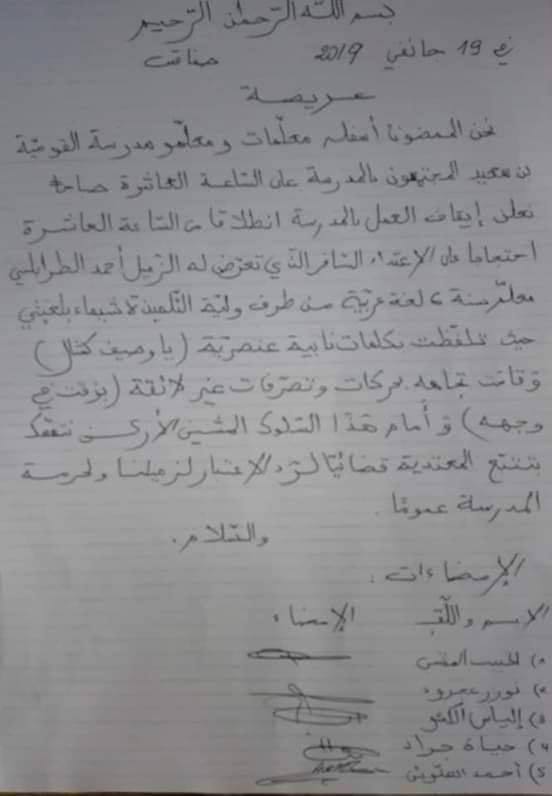 بسم الله الرحمن الرحيم
صفاقس في 19 جانفي 2019
عريضة
نحن الممضون أسفله معلّمات ومعلّمو مدرسة القومية
بن سعيد المجتمعون بالمدرسة على الساعة العاشرة صباحا
نعلن إيقاف العمل بالمدرسة انطلاقا من الساعة العاشرة
احتجاجا على الإعتداء السافر الذي تعرّض له الزميل أحمد الطرابلسي
معلّم سنة 6 لغة عربيّة من طرف وليّة التلميذة شيماء بلغيثي
حيث تلفّظت بكلمات نابية عنصريّة (يا وصيف كمثال)
وقامت تجاهه بحركات وتصرّفات غير لائقة (بزقت في
وجهه) وأمام هذا السلوك المشين الأرعن نتمسّك
بتتبّع المعتدية قضائيّا لردّ الإعتبار لزميلنا ولحرمة
المدرسة عموما.
والسّلام.
الإمضاءات:
الإسم واللّقب الإمضاء
1) الحبيب
2) نورة عمروه
3) إلياس
4) حياة جراد
5) أحمد